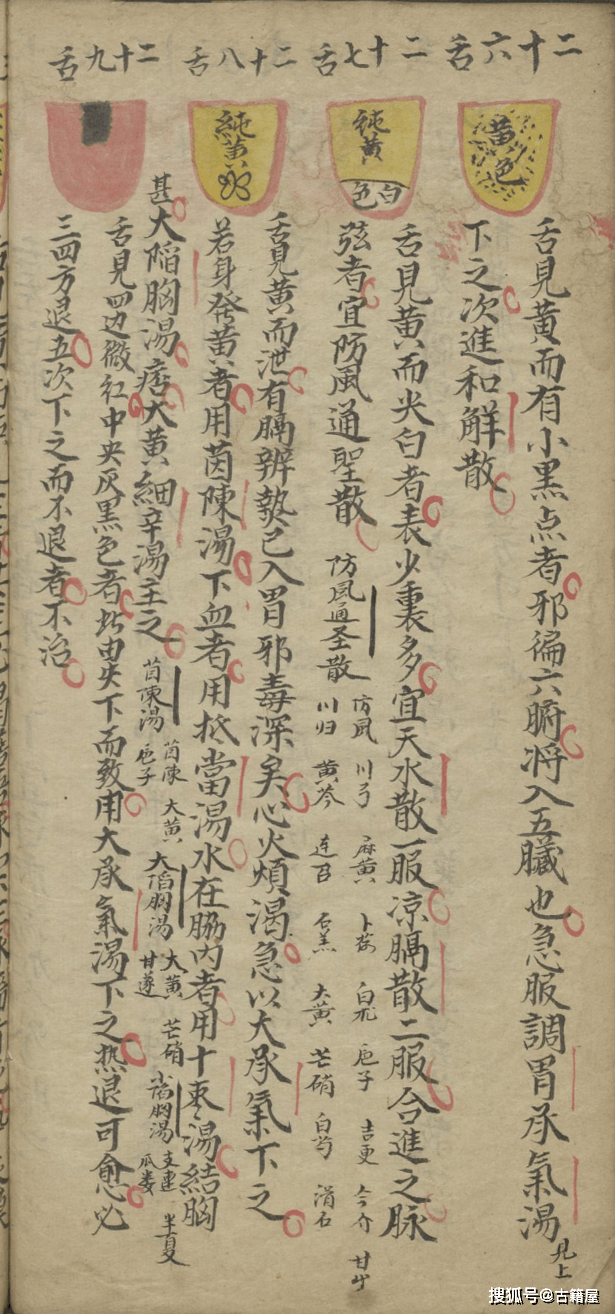 二十六舌
黄色
舌見黄而有小黒点者邪徧六腑将入五臓也急服調胃承氣湯見上
下之次進和解散
二十七舌
純黄
白色
舌見黄而尖白者表少裏多宜天水散一服凉膈散二服合進之脉
弦者宜防風通聖散
防風通圣散
防風 川弓 麻黄 卜荷 白朮 卮子 吉更 甘艹
川归 黄芩 连召 石羔 大黄 芒硝 白芍 滑石
二十八舌
純黄
舌見黄而泄有膈辨熱已入胃邪毒深矣心火煩渴急以大承氣下之
若身發黄者用茵陳湯下血者用抵當湯水在脇内者用十枣湯結胸
甚大陷胸湯痞大黄細辛湯主之
茵陳湯
茵陳 大黄
卮子
大陷胸湯
大黄 芒硝
甘遂
小陷胸湯
支連 半夏
瓜娄
二十九舌
舌見四边微红中央灰黒色者此由失下而致用大承氣湯下之热退可愈必
三四方退五次下之而不退者不治
搜狐号@古籍屋